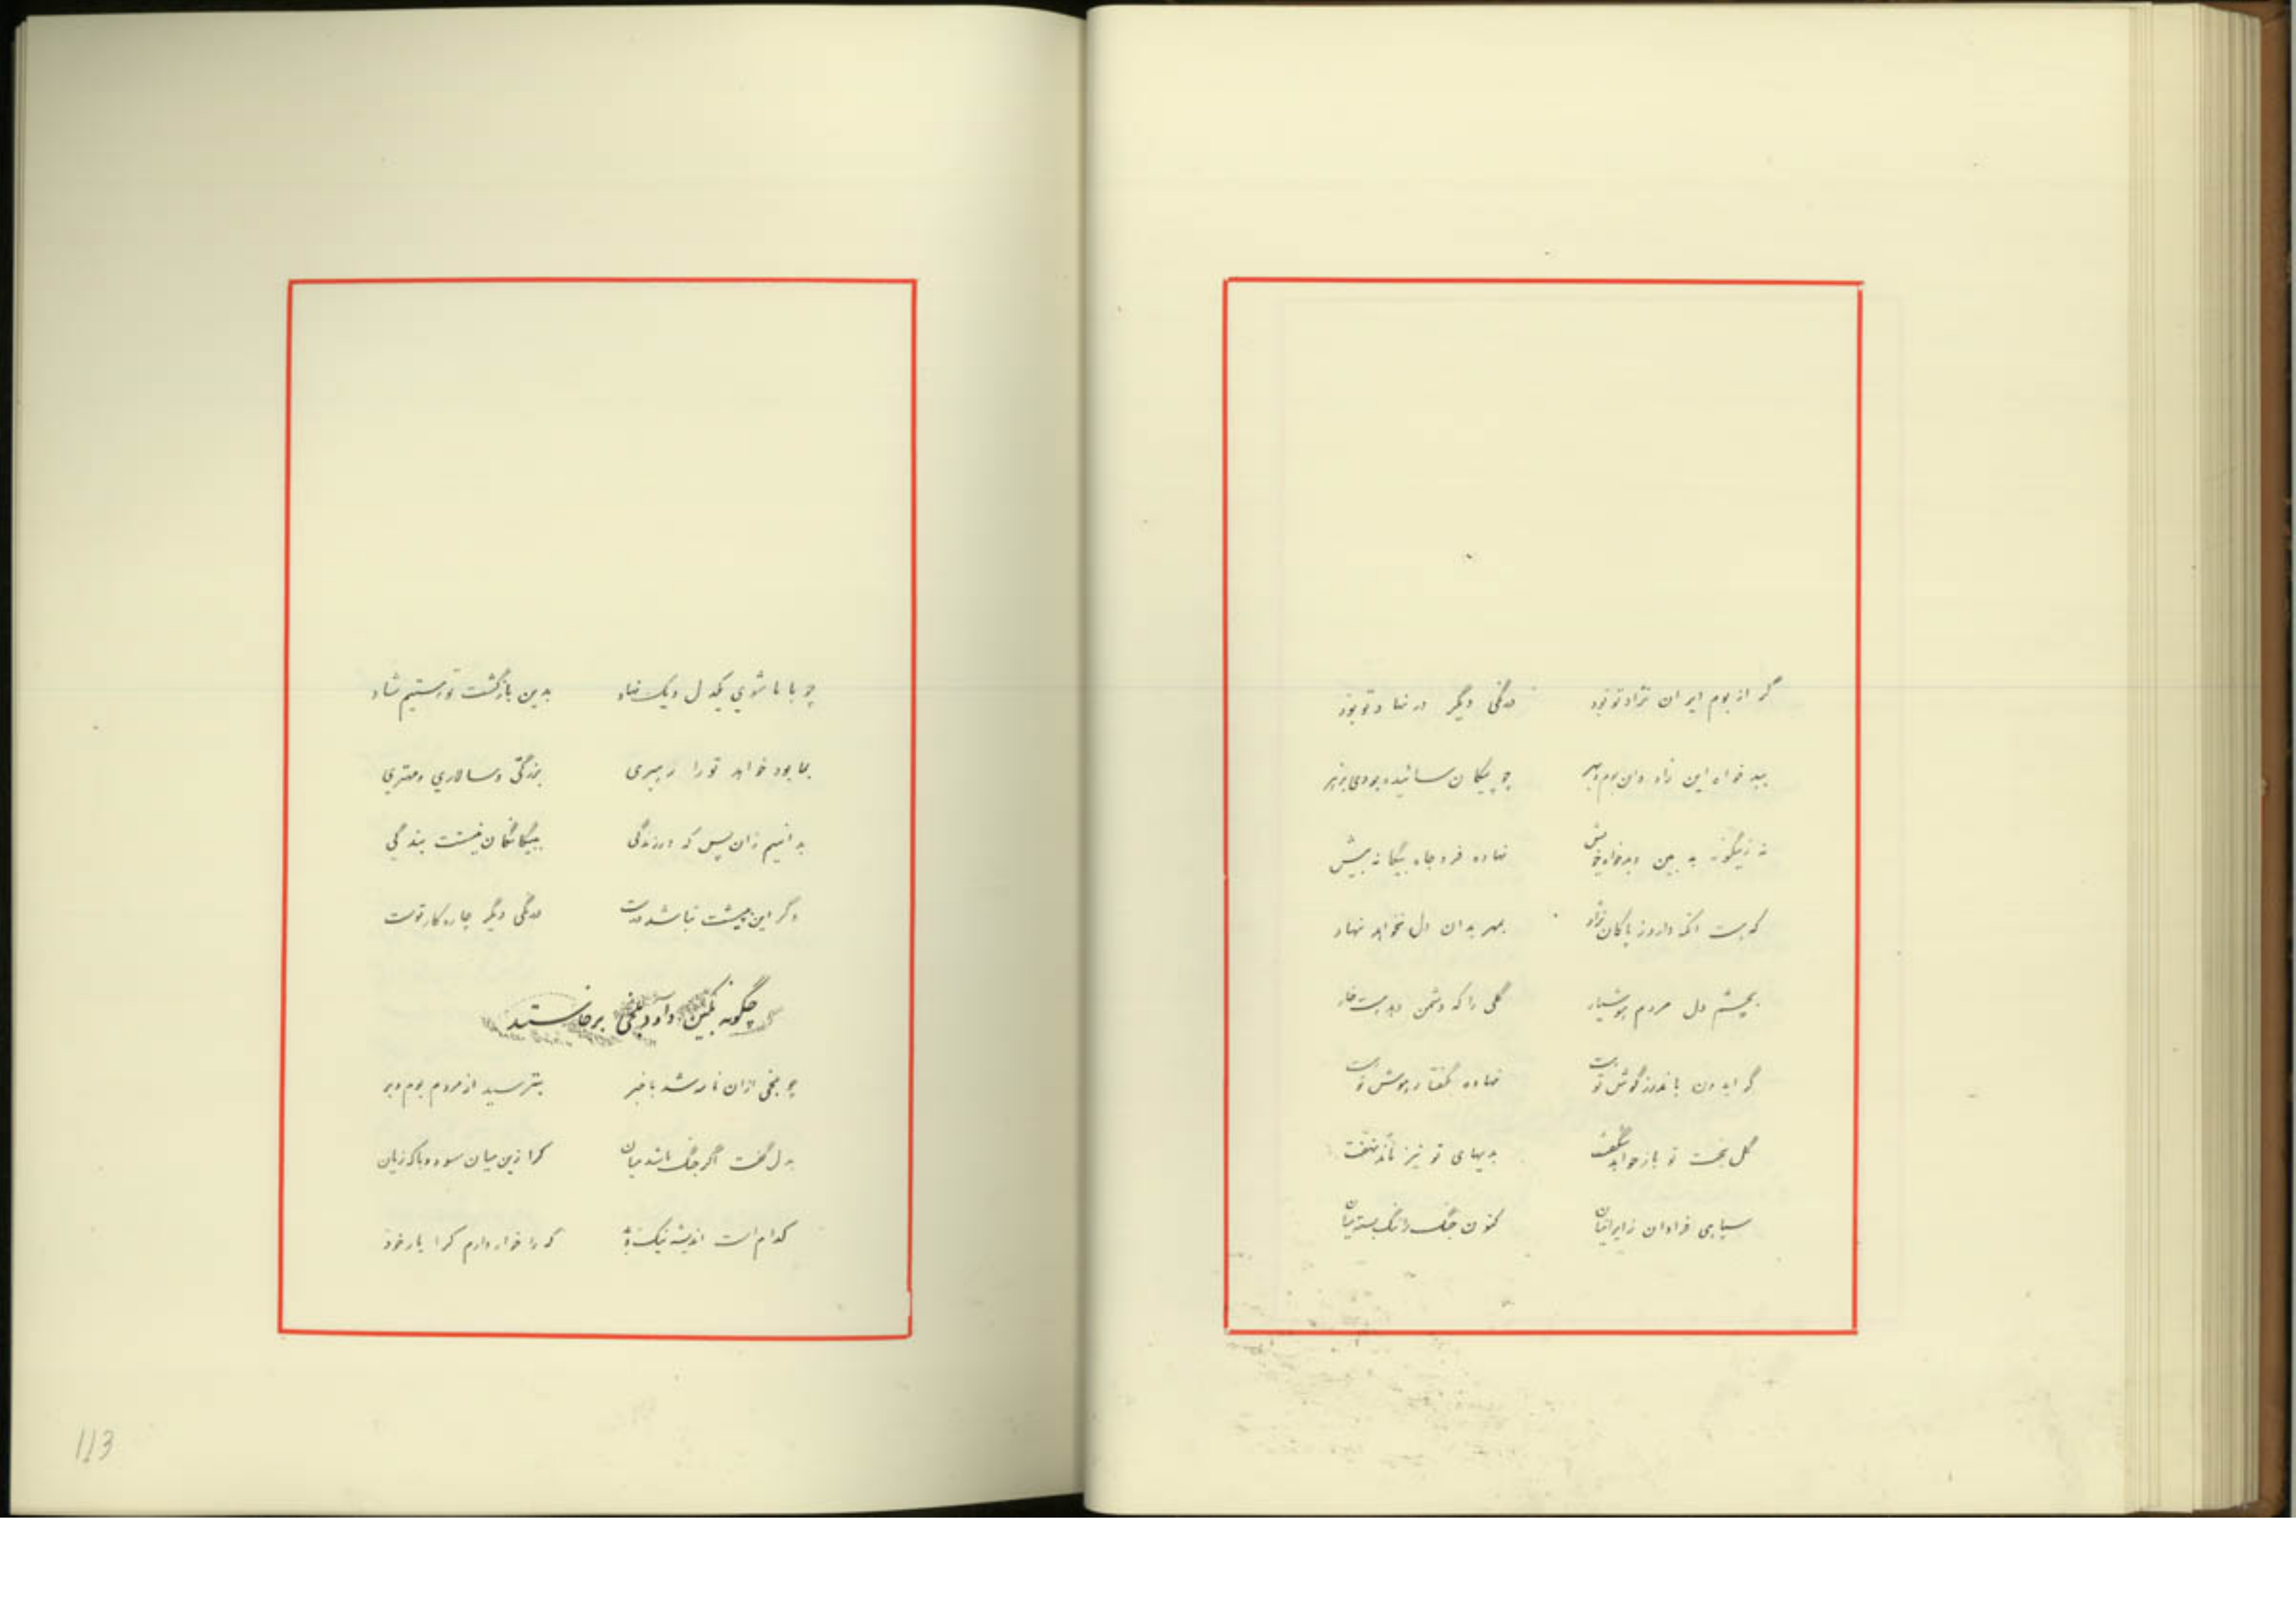 گر از بوم ایران نژاد تو نبود درنگی دیگر در نهاد تو بود
ببد خواه این زاد وان بوم وبر چو پیکان سائیده بودی
نه زینگونه به بین و بدخواه خویش نهاده فرو جاه بیگانه پیش
که هست آنکه دارد ز پاکان نژاد بمهر بدان دل نخواهد نهاد
بچشم دل مردم هوشیار گلی را که دشمن دهد هست خار
گر ایدون باندرز گوش تو هست نهاده بگفتار هوش تو هست
گل بخت تو باز خواهد شگفت بدیهای تو نیز ماند نهفت
سپاهی فراوان ز ایرانیان کنون جنگ را تنگ بسته میان
چو با ما شوی یکدل و یک نهاد بدین بازگشت تو هستیم شاد
بما بود خواهد تو را رهبری بزرگی و سالاری و مهتری
بدانیم زان پس که در زندگی ببیگانگان نیست بندگی
وگر این پیشت نباشد درست درنگی دیگر چاره کار توست
چگونه بکین داود بلخی برخاستند
چو بلخی ازان نامه شد باخبر بترسید از مردم بوم وبر
بدل گفت اگر جنگ باشد میان کرا زین میان سود و باکه زیان
کدام است اندیشه نیک که را خوار دارم کرا یار خود
113